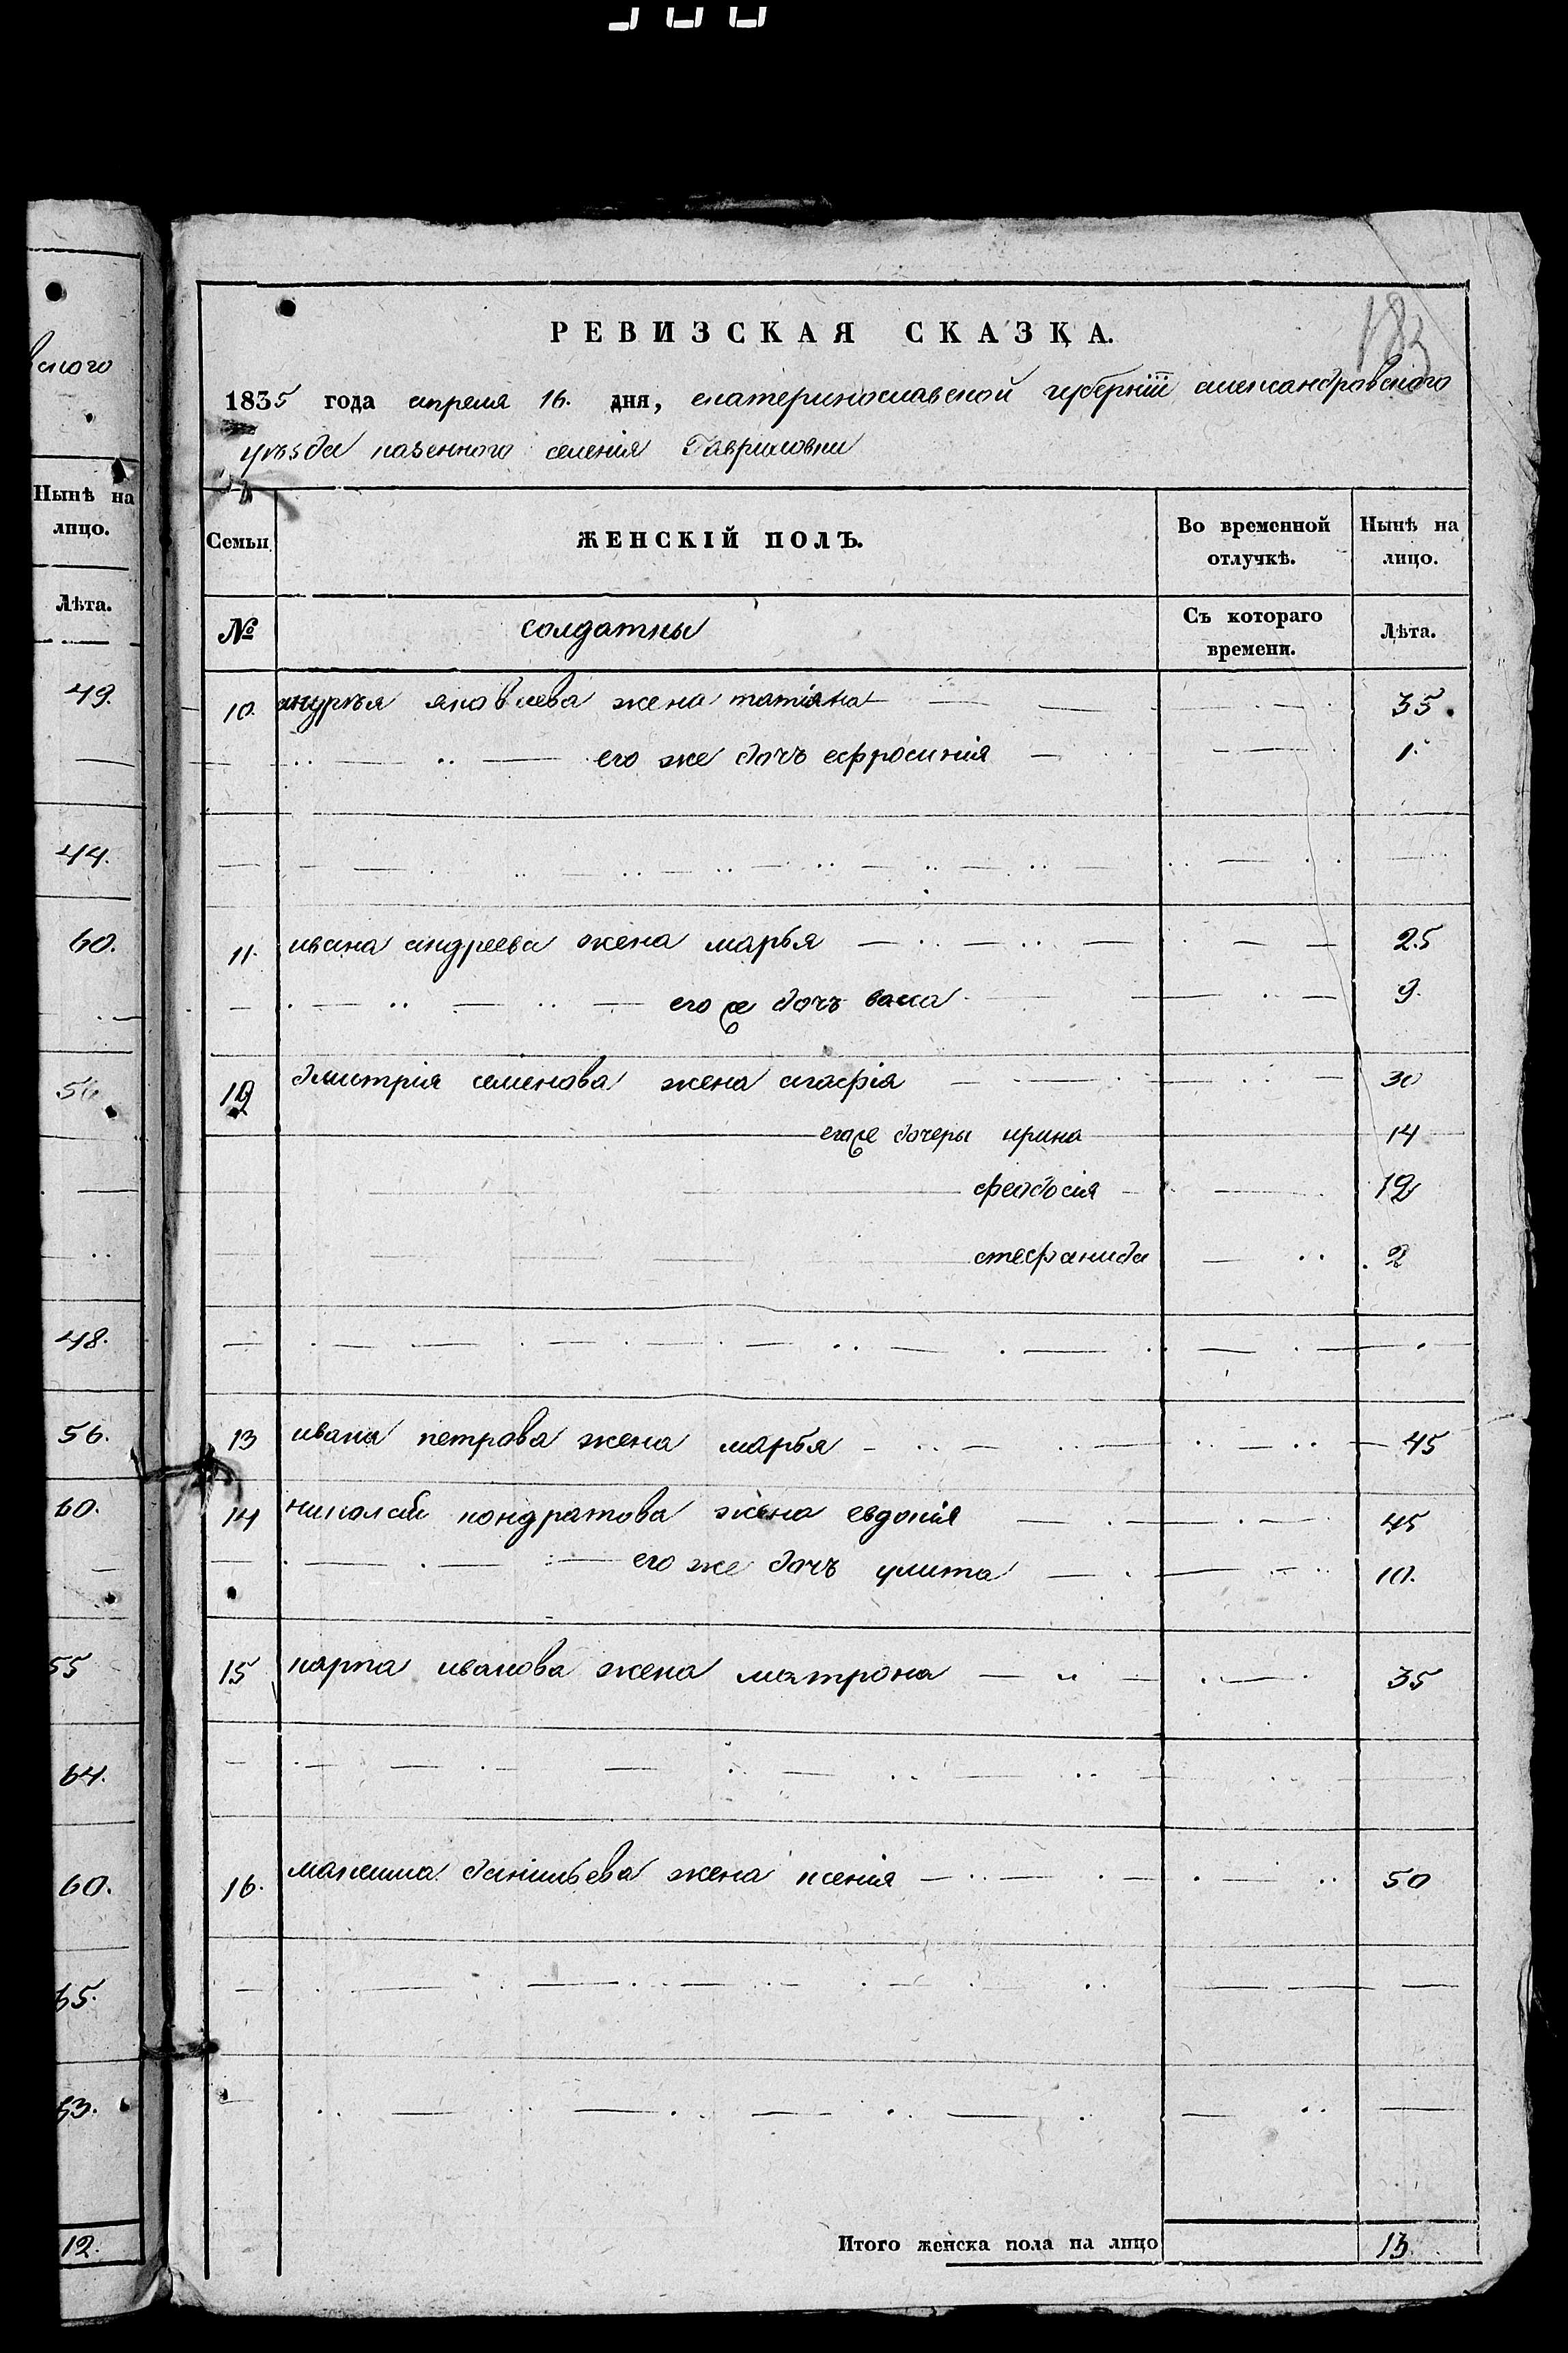 вского
Нынѣ на
лицо.
Лѣта.
49.
44.
60.
56
48.
56.
60.
55
64.
60.
65.
63.
12.
183
РЕВИЗСКАЯ СКАЗКА.
1835 года апреля 16. дня, екатеринославской губерніи александровского
уѣзда казенного селенія Гавриловки
Семьи ЖЕНСКІЙ ПОЛЪ. Во временной отлучкѣ. Нынѣ на лицо.
№ солдатки Съ котораго времени. Лѣта.
10. яковлева жена татіяна 35.
его же дочъ ефросинія 1.
11. ивана андреева жена марья 25
его же дочъ васса 9.
12 дмитрія семенова жена агафія 30
его же дочеры ирина 14
феодосія 12
стефанида 2
13 ивана петрова жена марья 45
14 николай кондратова жена евдокія 45
его же дочъ улита 10.
15 карпа иванова жена матрона 35
16. максима данильева жена ксенія 50
Итого женска пола на лицо 13.